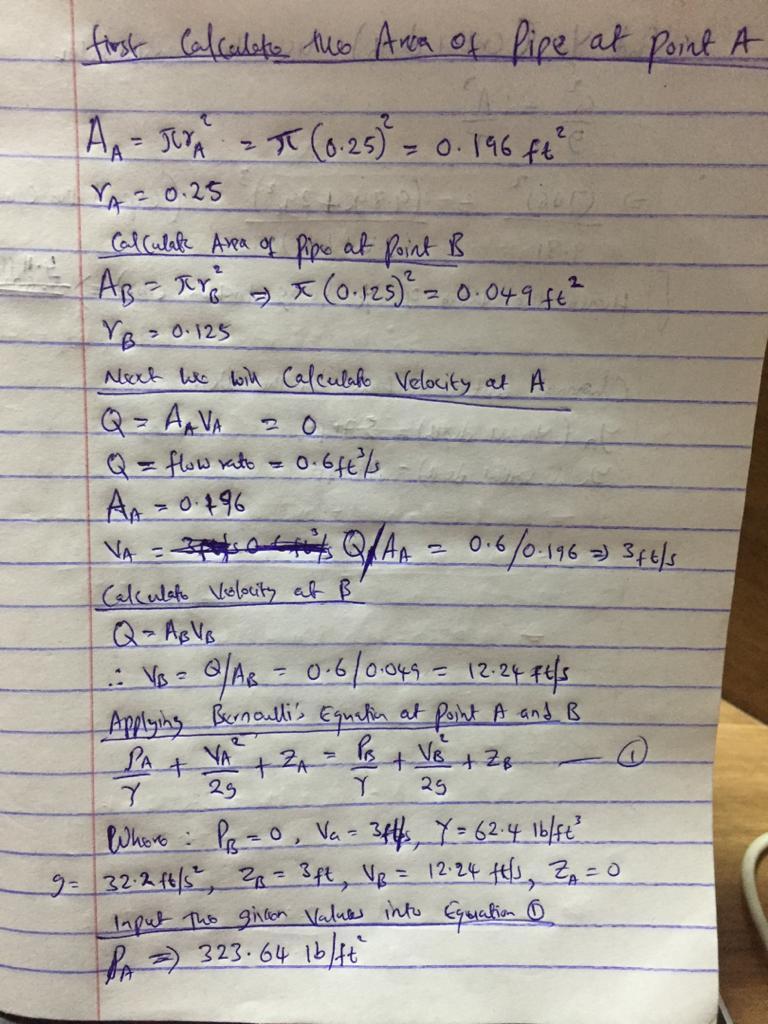 first Calculate the Area of Pipe at point A
A_A = πr_A² = π(0.25)² = 0.196 ft²
r_A = 0.25
Calculate Area of Pipe at Point B
A_B = πr_B² ⇒ π(0.125)² = 0.049 ft²
r_B = 0.125
Next we will Calculate Velocity at A
Q = A_A V_A = 0
Q = flow rate = 0.6 ft³/s
A_A = 0.196
V_A = Q/A_A = 0.6/0.196 ⇒ 3 ft/s
Calculate Velocity at B
Q = A_B V_B
∴ V_B = Q/A_B = 0.6/0.049 = 12.24 ft/s
Applying Bernoulli's Equation at point A and B
P_A/γ + V_A²/2g + Z_A = P_B/γ + V_B²/2g + Z_B — ①
Where : P_B = 0, Va = 3 ft/s, γ = 62.4 lb/ft³
g = 32.2 ft/s², Z_B = 3ft, V_B = 12.24 ft/s, Z_A = 0
Input the given values into Equation ①
P_A ⇒ 323.64 lb/ft²